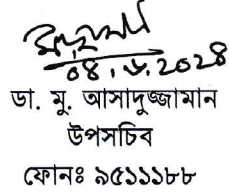 ০৪.৬.২০২৪
ডা. মু. আসাদুজ্জামান
উপসচিব
ফোনঃ ৯৫১১১৮৮